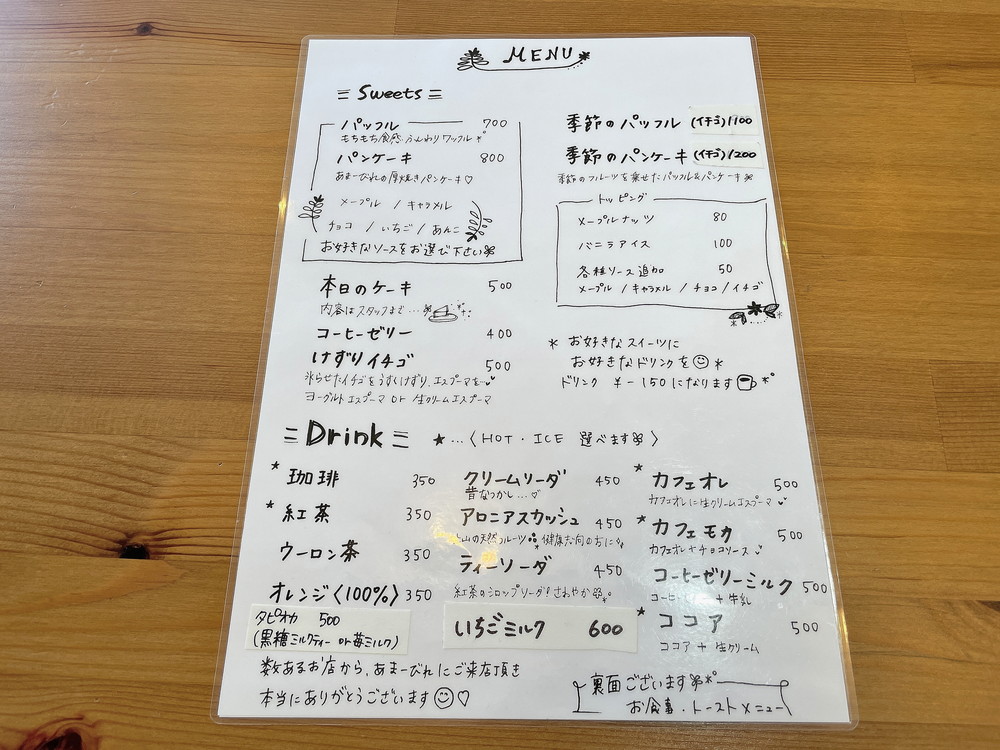 MENU
Sweets
パッフル 700
もちもち食感ふんわりワッフル
パンケーキ 800
あまーびれの厚焼きパンケーキ♡
メープル / キャラメル
チョコ / いちご / あんこ
お好きなソースをお選び下さい
本日のケーキ 500
内容はスタッフまで…
コーヒーゼリー 400
けずりイチゴ 500
氷らせたイチゴをうすくけずり、エスプーマを…
ヨーグルトエスプーマ or 生クリームエスプーマ
季節のパッフル (イチゴ)1100
季節のパンケーキ (イチゴ)1200
季節のフルーツを乗せたパッフル&パンケーキ
トッピング
メープルナッツ 80
バニラアイス 100
各種ソース追加 50
メープル / キャラメル / チョコ / イチゴ
* お好きなスイーツに
お好きなドリンクを☺*
ドリンク ¥-150になります
Drink ★…〈HOT・ICE 選べます〉
★珈琲 350
★紅茶 350
ウーロン茶 350
オレンジ〈100%〉350
タピオカ 500
(黒糖ミルクティー or 苺ミルク)
クリームソーダ 450
昔なつかし…♡
アロニアスカッシュ 450
山の天然フルーツ 健康志向の方に
ティーソーダ 450
紅茶のシロップソーダ!さわやか
いちごミルク 600
★カフェオレ 500
カフェオレに生クリームエスプーマ
★カフェモカ 500
カフェオレ+チョコソース
コーヒーゼリーミルク 500
+ 牛乳
★ココア 500
ココア + 生クリーム
数あるお店から、あまーびれにご来店頂き
本当にありがとうございます☺♡
裏面ございます
お食事・トーストメニュー